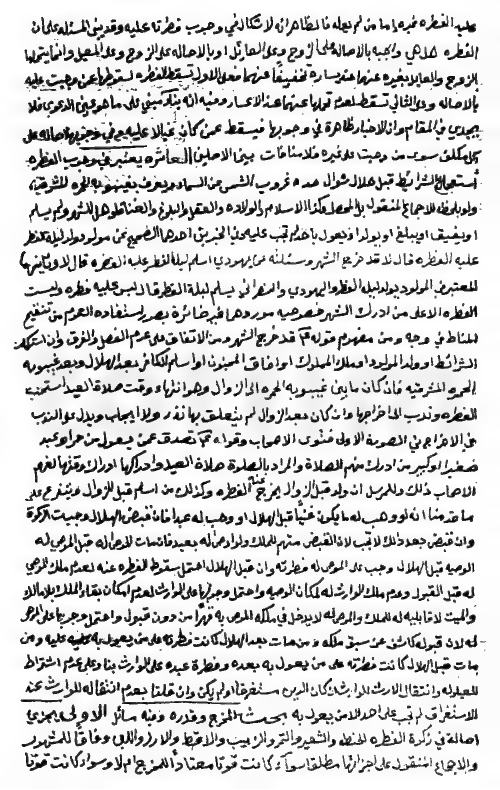 عليه الفطره غيره اما من لم يعله فالظاهر انه لا شكال في وجوب فطرتا عليه وقد يبنى المسئله على ان
الفطره هل هي واجبه بالاصاله على الزوج وعلى العائل او بالاصاله على الزوجه وعلى المعيل وانما يتحملها
الزوج والعايل بغيره عنهما عند يساره تخفيفًا عنهما فعلى الاول تسقط الفطره لسقوطها عمن وجبت عليه
بالاصاله وعلى الثانى تسقط لعدم تحملها عنهما عند الاعسار وفيه انه بناء مبنى على ما هو عين الدعوى فلا
يجدى في المقام وان الاخبار ظاهرة في وجوبها فيسقط عمن كان عيالا عليه وفي وجوبها اصاله على
كل مكلف سوى من وجبت على غيره فلا منافات بين الاصلين العاشره يعتبر في وجوب الفطره
استجماع الشرائط قبل هلال شوال عنده غروب الشمس عن السماء ويعرف بغيبوبه الحمره المشرقيه
ولو بلحظه للاجماع المنقول بل المحصل وكذا الاسلام والولاده والعقل والبلوغ والغنا فلو هل الشهر ولم يسلم
او يفيق او يبلغ او يولد او يعول باحد لم تجب عليه وفي الخبرين احدهما الصحيح عن مولود ولد ليلة الفطر
عليه الفطره قال لا قد خرج الشهر وسئلته عن يهودي اسلم ليلة الفطر عليه الفطره قال لا وثانيهما
المعتبر في المولود يولد ليلة الفطر واليهودي والنصراني يسلم ليلة الفطر قال ليس عليه فطره وليست
الفطره الا على من ادرك الشهر فخصوصيه موردهما غير ضائرة بعد استفاده العموم من تنقيح
المناط في وجه ومن مفهوم قوله قد خرج الشهر ومن الاتفاق على عدم الفصل والفرق وان استكمل
الشرائط او ولد المولود او ملك المملوك او افاق المجنون او اسلم الكافر بعد الهلال وبعد غيبوبه
الحمره المشرقيه فان كان ما بين غيبوبه الحمره الى الزوال وهو انتهاء وقت صلاة العيد استحب
الفطره وندب الى اخراجها وان كان بعد الزوال لم يتعلق بها نذر ولا ايجاب ويدل على الندب
في الاخراج في الصورة الاولى فتوى الاصحاب وقوله تصدق عمن يعول من حر او عبد
صغير او كبير من ادرك منهم الصلاة والمراد بالصلوة صلاة العيد وادراكها ادراك وقتها لفهم
الاصحاب ذلك وللمرسل ان ولد قبل الزوال يخرج عنه الفطره وكذلك من اسلم قبل الزوال ويتفرع على
ما قدمنا انه لو وهب له ما يكون غنيًا قبل الهلال او وهب له عبدا فان قبض الهلال وجبت الزكوة
وان قبض بعد ذلك لا تجب لان القبض متمم للملك ولو اوصى له بعبد فمات الموصى له قبل
الوصيه قبل الهلال وجب على الموصى له فطرته وان قبل الهلال احتمل سقوط الفطره عنه لعدم ملك الموصى
له قبل القبول وعدم ملك الوارث له لمكان الوصيه واحتمل وجوبها على الوارث لعدم امكان بقاء الملك بلا مالك
والميت لا قابليه له للملك والموصى له لا يدخل في ملكه الموصى به قهرًا من دون قبول واحتمل وجوبها على الموصى
له لان قبوله كاشف عن سبق ملكه ومن مات بعد الهلال كانت فطرته على من يعول به عليه ومن
مات قبل الهلال كانت فطرته على من يعول به بعده وفطرة عبده على الوارث بناء على عدم اشتراط
العيلوله وانتقال الارث للوارث ان كان الدين مستغرقا او لم يكن وان قلنا بعدم انتقاله للوارث عند
الاستغراق لم تجب على احد الا من يعول به بحث المخرج وقدره وفيه مسائل الاولى يجزى
اصاله في زكوة الفطره الحنطه والشعير والتمر والزبيب والاقط والارز واللبن وفاقًا للمشهور
والاجماع المنقول على اجزائها مطلقا سواء كانت قوتا معتادا للمخرج ام لا وسواء كانت قوتا